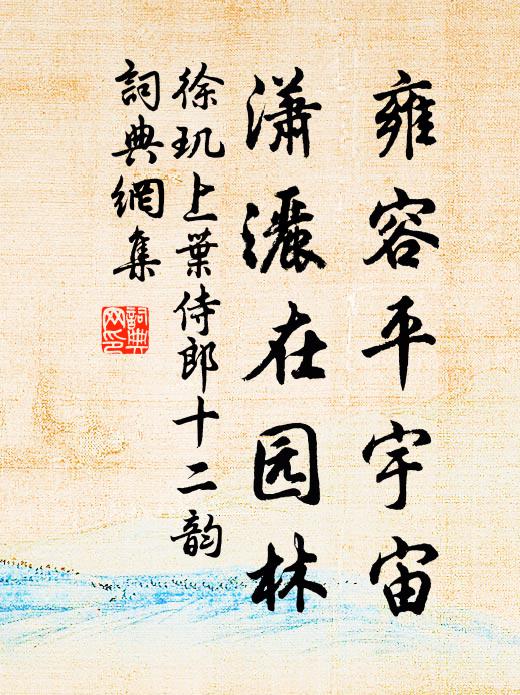 雍容平宇宙
瀟灑在园林
徐玑上葉侍郎十二韵
詞典網集
詞典
网印